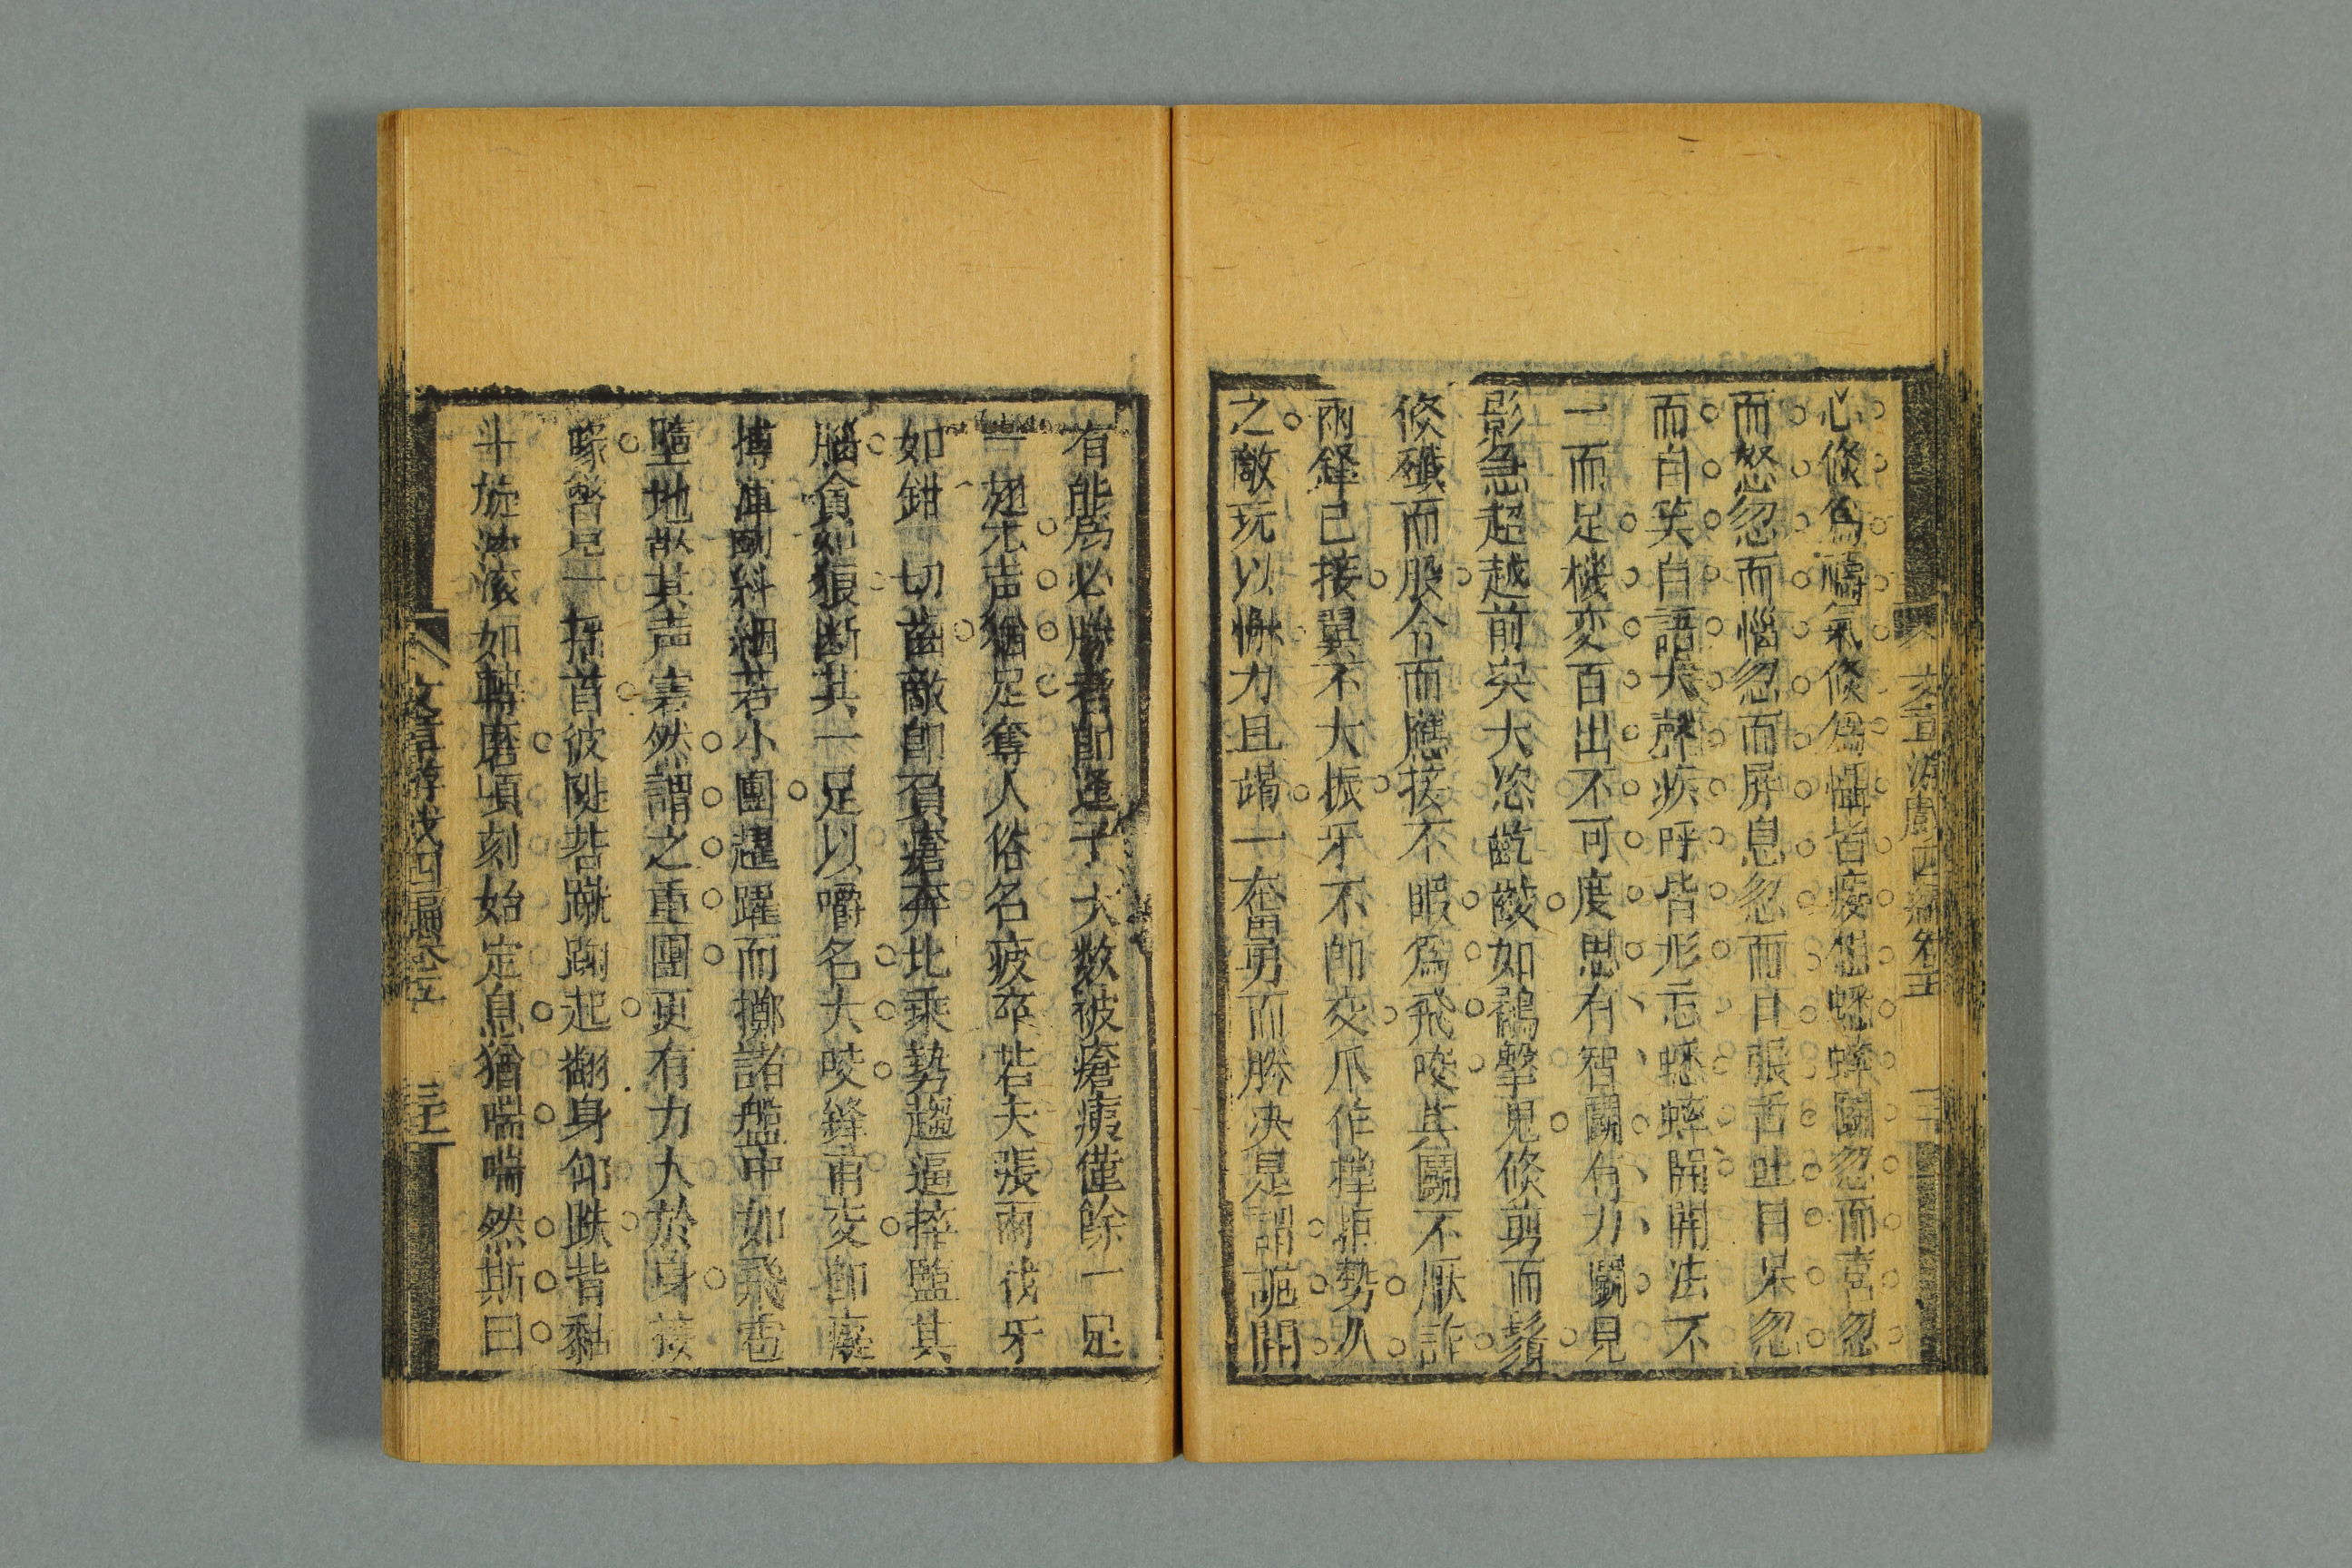 文章游戲四編卷五
心倐為禱氣倐為懾皆疲但蟋蟀鬬忽而喜忽
而怒忽而惱忽而屏息忽而口張舌吐目呆忽
而自笑自語大聲疾呼皆形忘蟋蟀開開法不
一而足機変百出不可度思有智鬬有力鬬見
影急超越前突大恣齕齩如鶻擊兔倐剪而鬚
倐殲而股令而應接不暇為飛咬其鬬不厭詐
兩鋒已接翼不大振牙不即交爪作撑拒勢久
之敵玩以懈力且竭一奮勇而勝决是謂詭開
有能為必勝者即逢孑大数被瘡痍僅餘一足
一翅先声猶足奪人俗名疲卒若夫張兩伐牙
如鉗一切齒敵即負瘡奔北乘勢趨逼捽監其
腦貪如狼断其一足以嚼名大咬鋒甫交即癡
搏運闘糾綑若小團趯躍而擲諸盤中如飛雹
墮地故其声砉然謂之重團更有力大於身接
喙瞥見一摇首彼陡若蹴踘起翻身仰跌背黏
斗旋泆滚如轉磨頃刻始定息猶喘喘然斯曰
文章游戏四編卷五